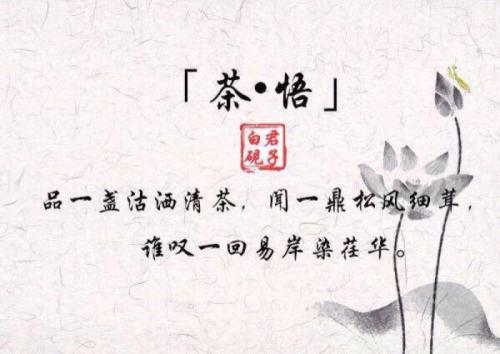 「茶•悟」
君子
白砚
品一盏沽酒清茶，闻一鼎松风细茸，
谁叹一回易岸染荏华。